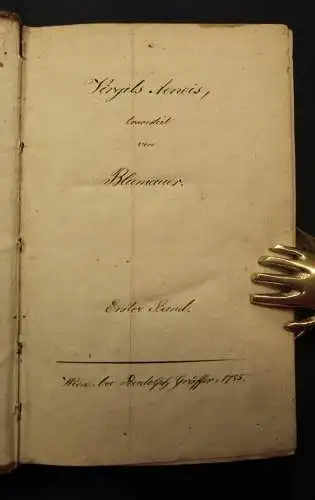 Virgils Aeneis,
travestirt
von
Blumauer.
Erster Band.
Wien, bei Rudolph Gräffer, 1785.